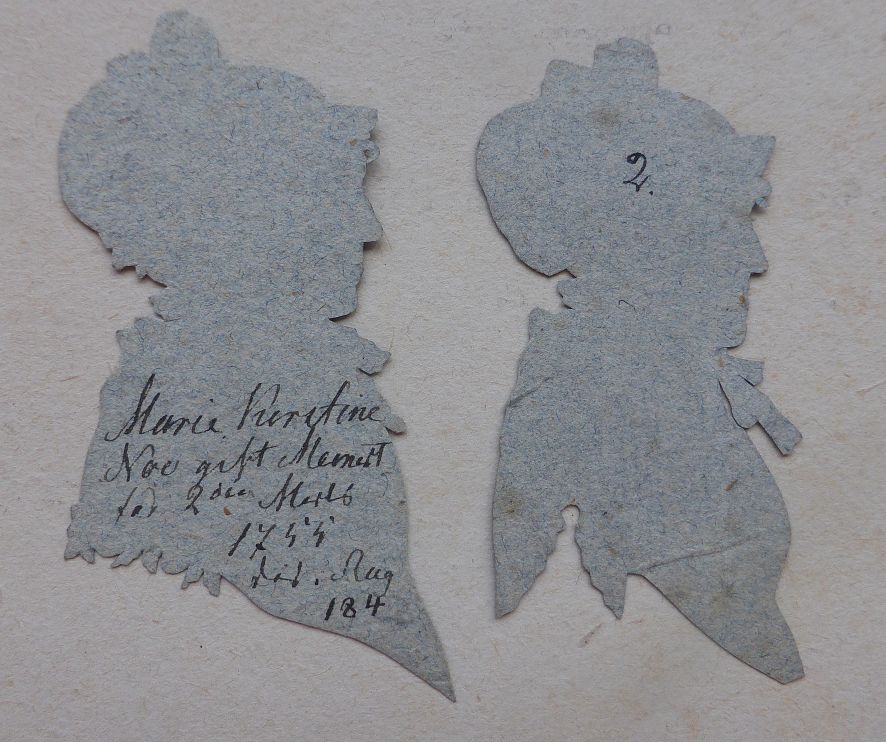 Marie Kirstine
Noe gift Meinert
fød 2den Marts
1755
død. Aug
184
2.